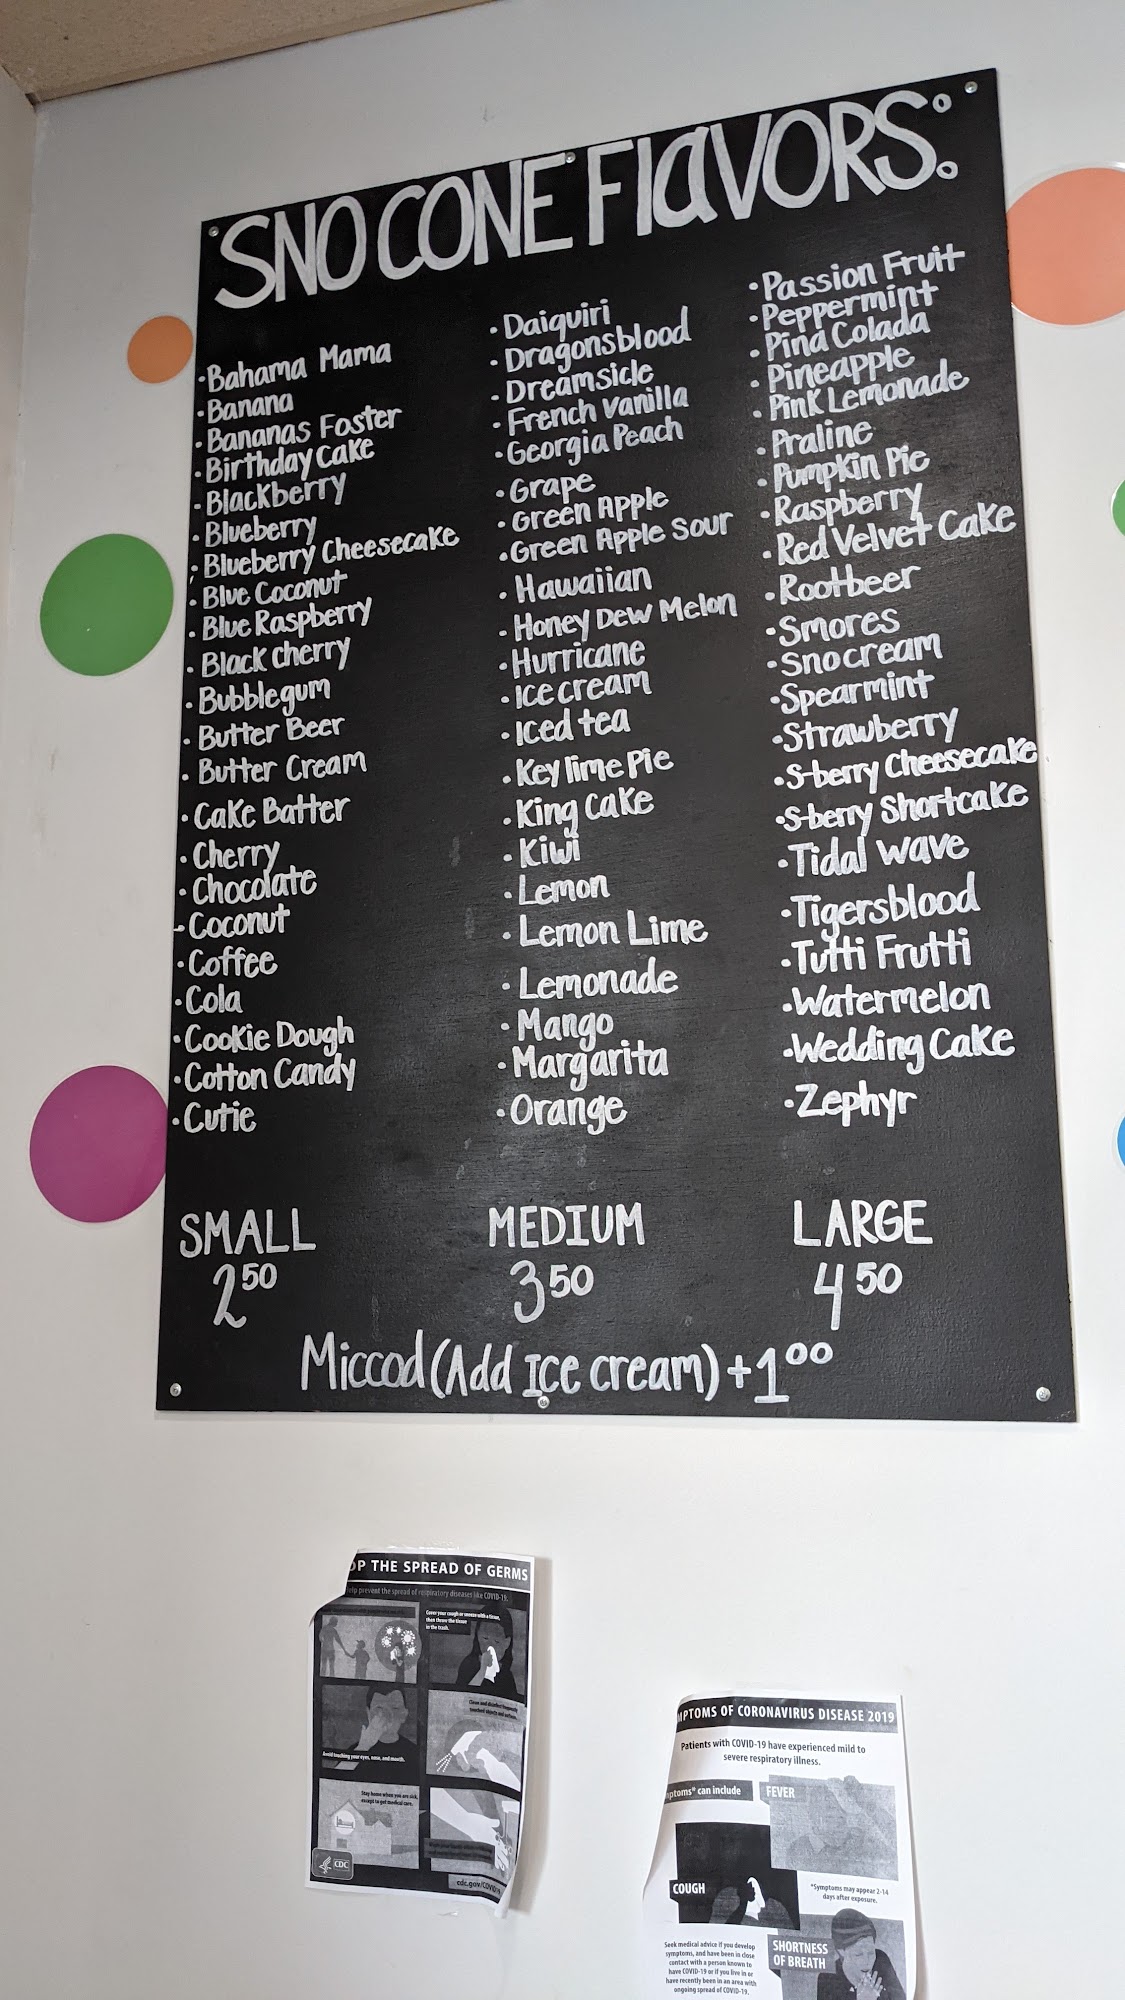 SNO CONE FlaVORS:
· Bahama Mama
· Banana
· Bananas Foster
· Birthday Cake
· Blackberry
· Blueberry
· Blueberry Cheesecake
· Blue Coconut
· Blue Raspberry
· Black cherry
· Bubblegum
· Butter Beer
· Butter Cream
· Cake Batter
· Cherry
· Chocolate
· Coconut
· Coffee
· Cola
· Cookie Dough
· Cotton Candy
· Cutie
· Daiquiri
· Dragonsblood
· Dreamsicle
· French Vanilla
· Georgia Peach
· Grape
· Green Apple
· Green Apple Sour
· Hawaiian
· Honey Dew Melon
· Hurricane
· Ice cream
· Iced tea
· Key lime Pie
· King Cake
· Kiwi
· Lemon
· Lemon Lime
· Lemonade
· Mango
· Margarita
· Orange
· Passion Fruit
· Peppermint
· Pina Colada
· Pineapple
· Pink Lemonade
· Praline
· Pumpkin Pie
· Raspberry
· Red Velvet Cake
· Rootbeer
· Smores
· Snocream
· Spearmint
· Strawberry
· S-berry Cheesecake
· S-berry Shortcake
· Tidal wave
· Tigersblood
· Tutti Frutti
· Watermelon
· Wedding Cake
· Zephyr
SMALL
2 50
MEDIUM
3 50
LARGE
4 50
Miccod (Add Ice cream) + 1 00
OP THE SPREAD OF GERMS
elp prevent the spread of respiratory diseases like COVID-19.
Cover your cough or sneeze with a tissue,
then throw the tissue
in the trash.
Clean and disinfect frequently
touched objects and surfaces.
Avoid touching your eyes, nose, and mouth.
Stay home when you are sick,
except to get medical care.
CDC
cdc.gov/COVID
MPTOMS OF CORONAVIRUS DISEASE 2019
Patients with COVID-19 have experienced mild to
severe respiratory illness.
mptoms* can include
FEVER
COUGH
*Symptoms may appear 2-14
days after exposure.
Seek medical advice if you develop
symptoms, and have been in close
contact with a person known to
have COVID-19 or if you live in or
have recently been in an area with
ongoing spread of COVID-19.
SHORTNESS
OF BREATH